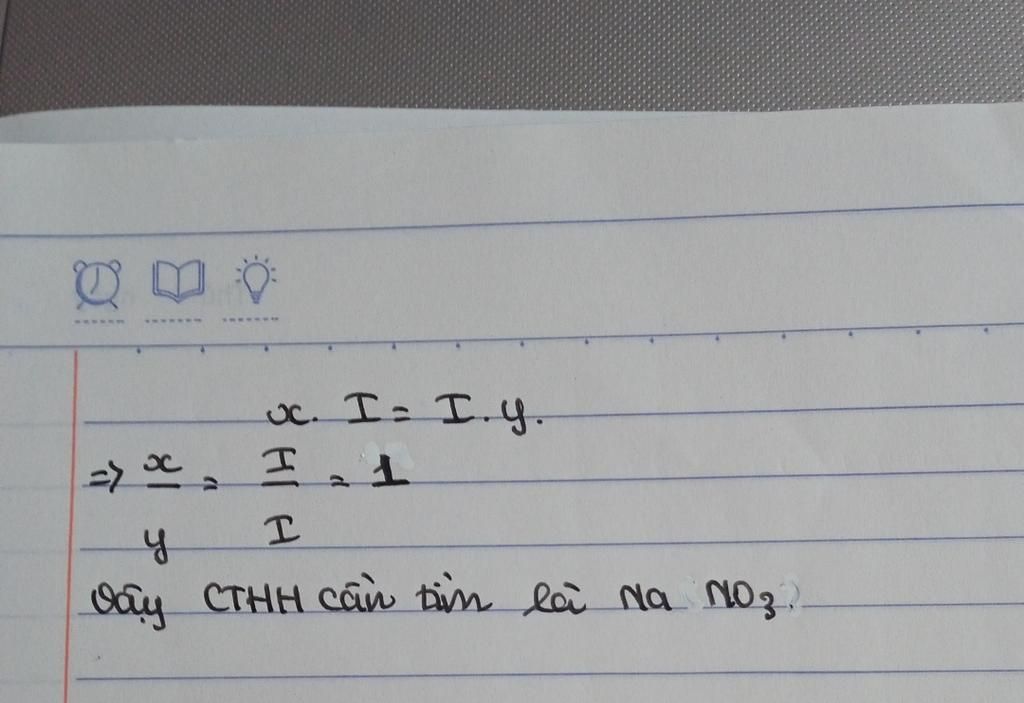 x. I = I. y.
=> x/y = I/I = 1
Vậy CTHH cần tìm là Na NO₃.